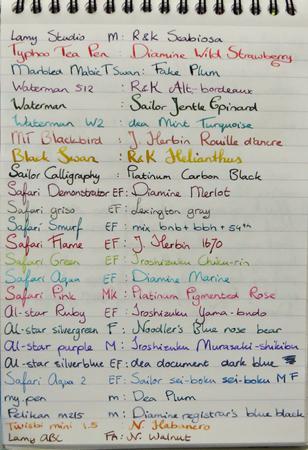 Lamy Studio M: R&K Scabiosa
Typhoo Tea Pen: Diamine Wild Strawberry
Marbled Mabie T Swan: Fake Plum
Waterman 512: R&K Alt-bordeaux
Waterman: Sailor Jentle Epinard
Waterman W2: dea Mint Turquoise
MT Blackbird: J. Herbin Rouille d'ancre
Black Swan: R&K Helianthus
Sailor Calligraphy: Platinum Carbon Black
Safari Demonstrator EF: Diamine Merlot
Safari griso EF: lexington gray
Safari Smurf EF: mix bnb + bbh + 54th
Safari Flame EF: J. Herbin 1670
Safari Green EF: Iroshizuku Chiku-rin
Safari Aqua EF: Diamine Marine
Safari Pink MK: Platinum Pigmented Rose
Al-star Ruby EF: Iroshizuku Yama-budo
Al-star silvergreen F: Noodler's Blue nose bear
Al-star purple M: Iroshizuku Murasaki-shikibu
Al-star silverblue EF: dea document dark blue
Safari Aqua 2 EF: Sailor sei-boku sei-boku MF
my pen m: Dea Plum
Pelikan m215 m: Diamine registrar's blue black
Twisbi mini 1.5 N. Habanero
Lamy ABC FA: N. Walnut